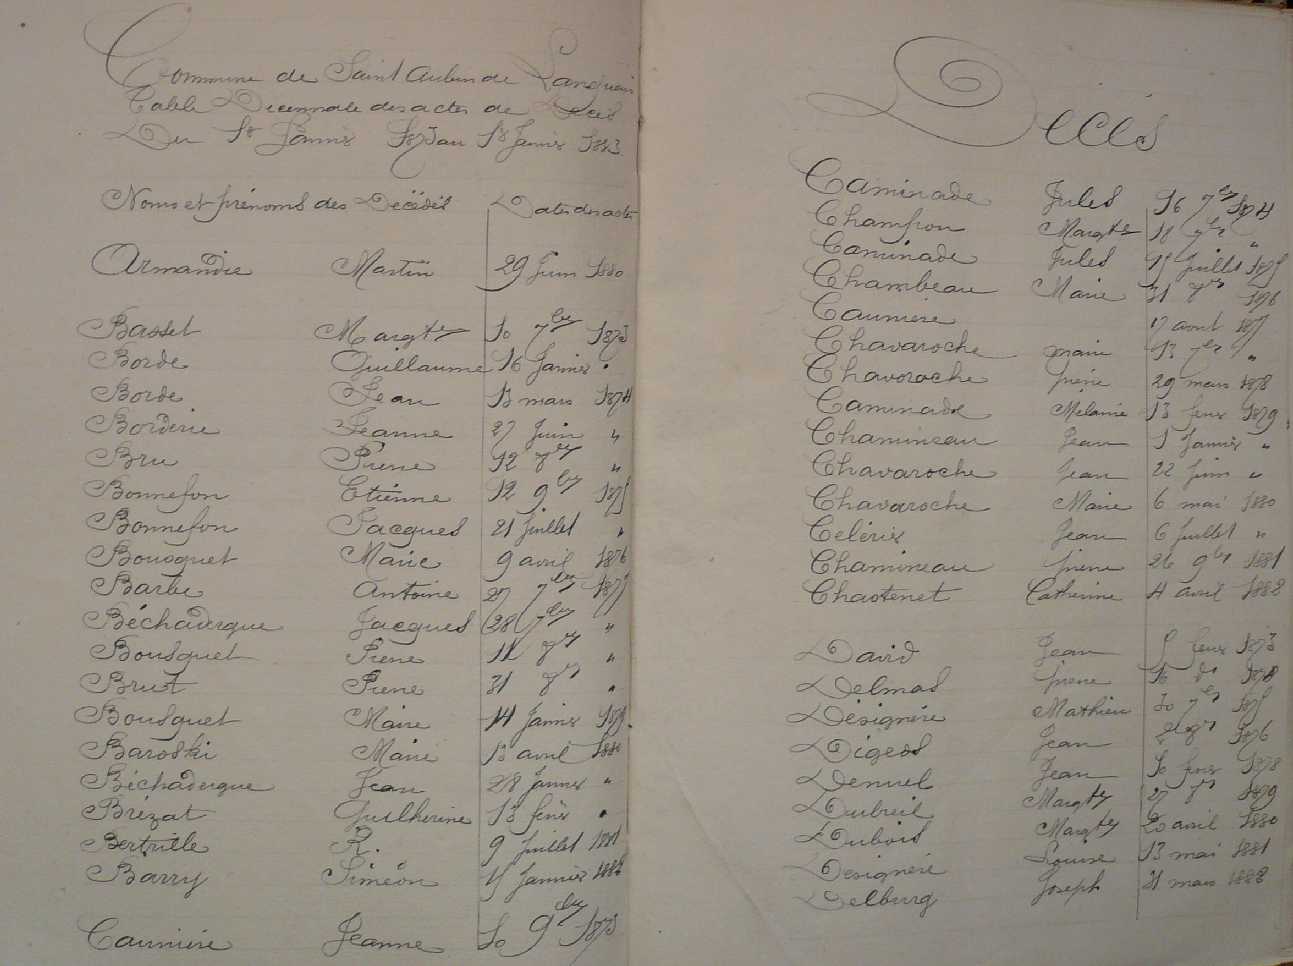 Commune de Saint Aubin de Lanquais
Table Décennale des actes de Décès
Du 1er Janvier 1873 au 1er Janvier 1883
Noms et prénoms des Décédés Dates des actes
Armandie Martin 29 Juin 1880
Basset Margte 10 7bre 1873
Borde Guillaume 16 Janvier "
Borde Jean 13 mars 1874
Borderie Jeanne 27 Juin "
Bru Pierre 12 8bre "
Bonnefon Etienne 12 9bre 1875
Bonnefon Jacques 21 Juillet "
Bousquet Marie 9 avril 1876
Barbe Antoine 27 7bre 1877
Béchadergue Jacques 28 7bre "
Bousquet Pierre 11 8bre "
Brut Pierre 31 8bre "
Bousquet Marie 14 Janvier
Baroski Marie 13 avril 1880
Béchadergue Jean 28 Janvier "
Brézat Guilherine 13 fevr "
Bertrille R. 9 Juillet 1881
Barry Siméon Janvier 1882
Caumière Jeanne 10 9bre 1873
Décès
Caminade Jules 16 7bre 1874
Champon Margte 18 7bre "
Caminade Jules 15 Juillet 1875
Chambeau Marie 31 8bre 1876
Caumiere 17 aout 1877
Chavaroche marie 13 7bre "
Chavaroche pierre 29 mars 1878
Caminade Mélanie 13 fevr 1879
Chamineau Jean 1 Janvier "
Chavaroche Jean 22 Juin "
Chavaroche Marie 6 mai 1880
Célérier Jean 6 Juillet "
Chamineau pierre 26 9bre 1881
Chastenet Catherine 4 avril 1882
David Jean fevr 1873
Delmas pierre 16 do
Désignère Mathieu 30 7bre 1875
Digeos Jean 8bre 1876
Denuel Jean 10 fevr 1878
Dubreil Margte 27 8bre 1879
Dubois Margte 20 avril 1880
Designere Louise 13 mai 1881
Delburg Joseph 31 mars 1882